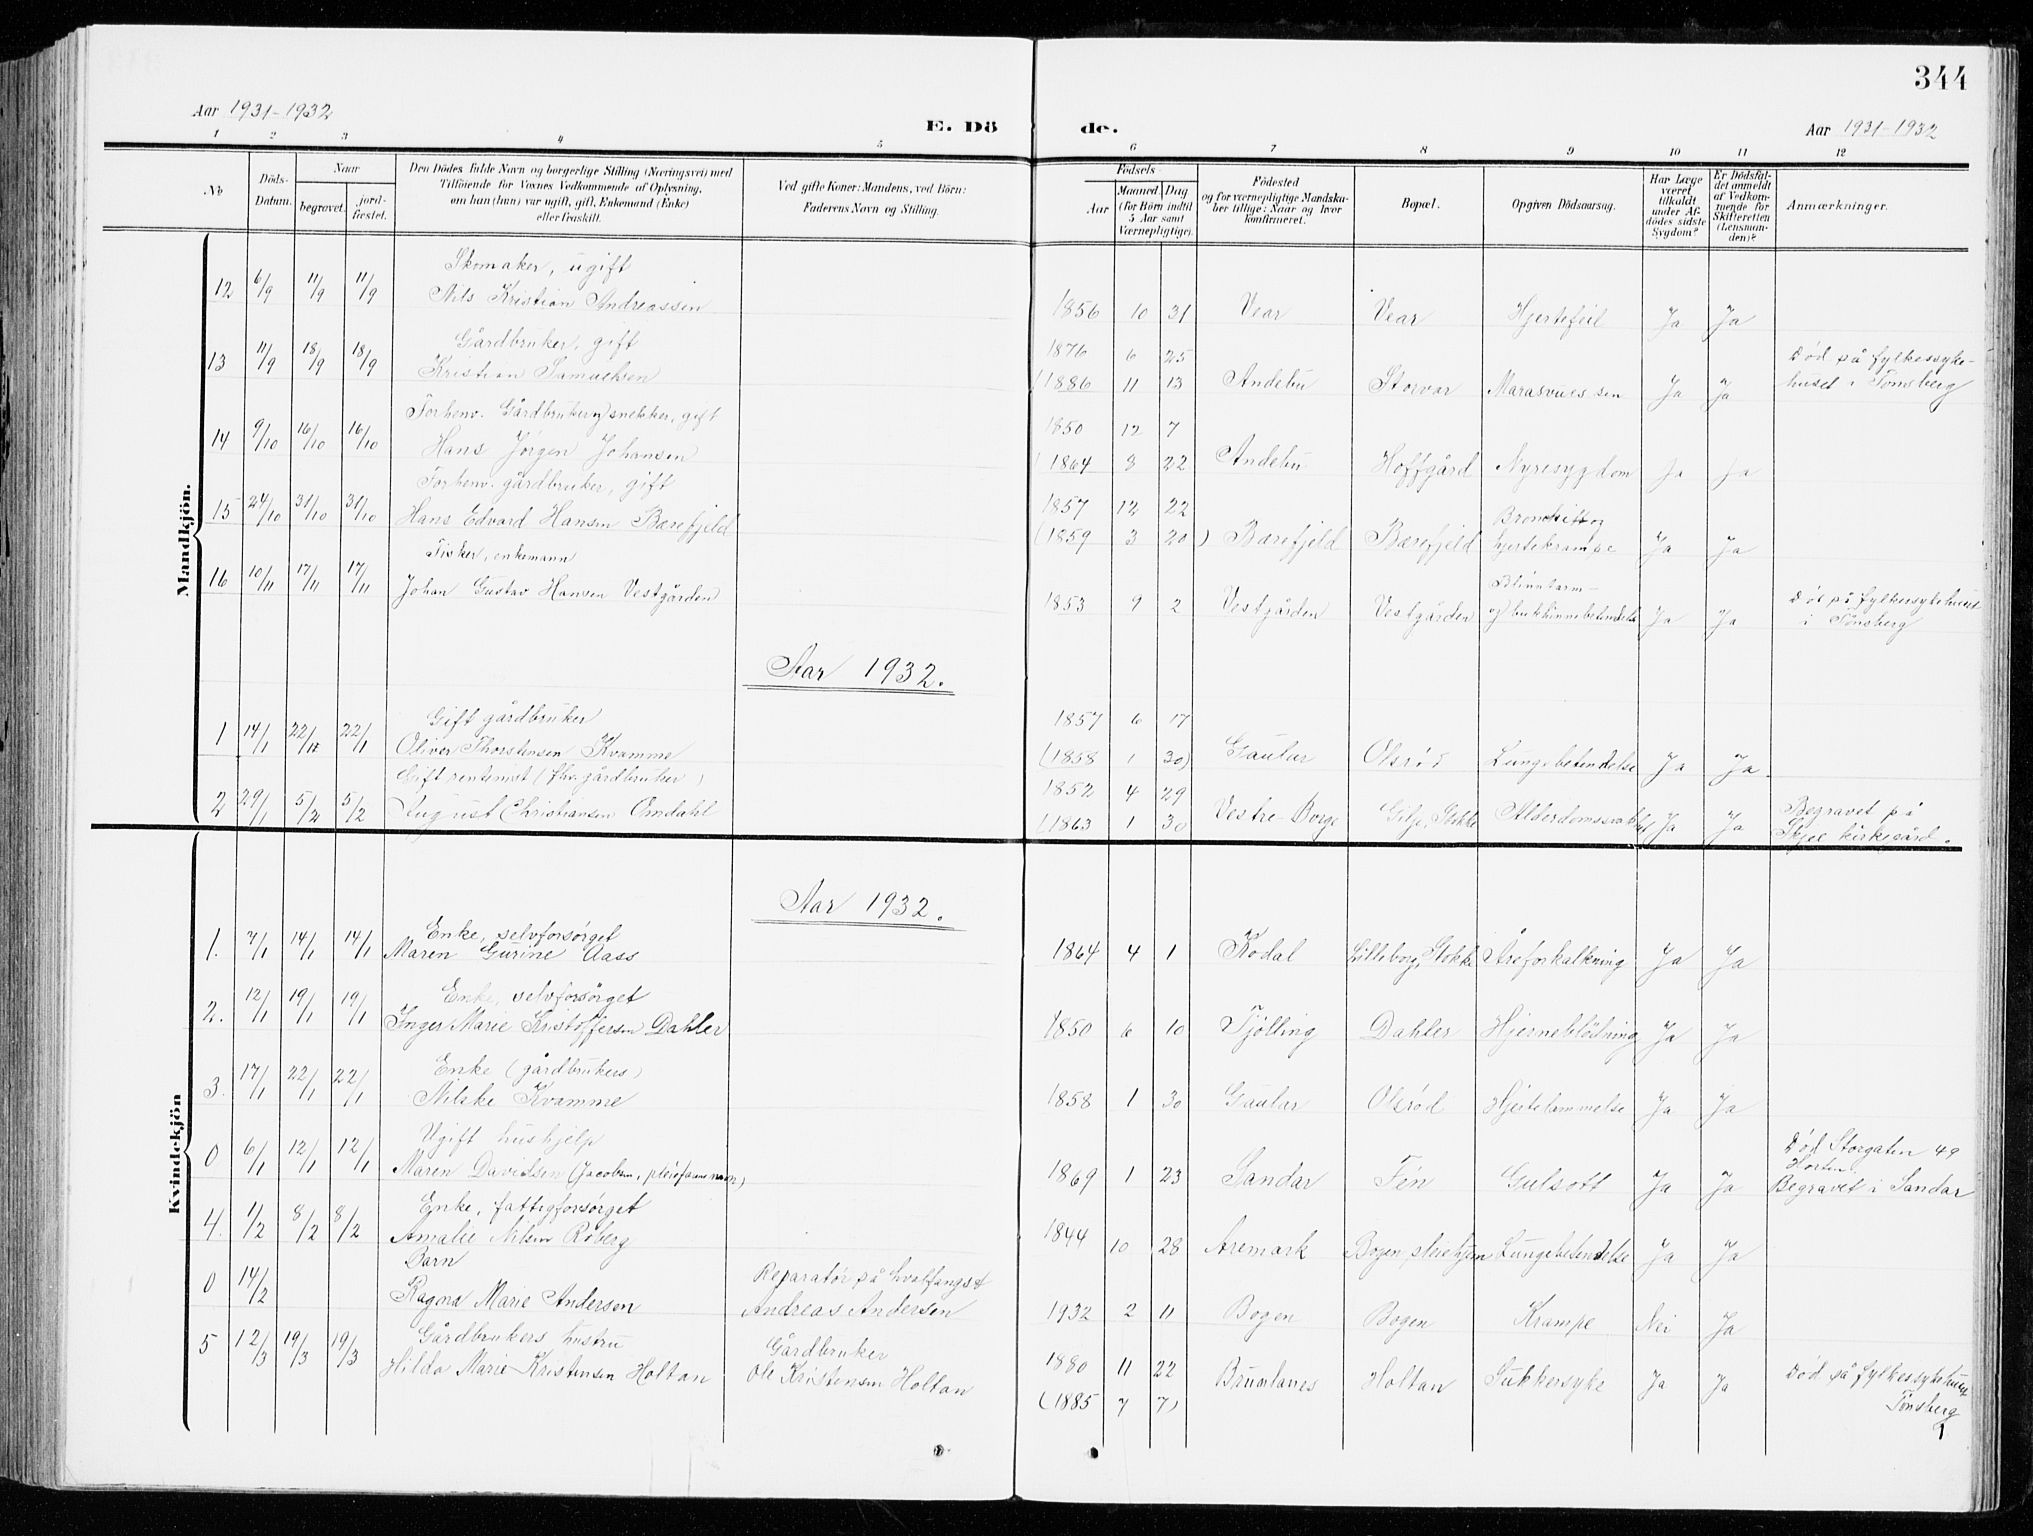 344
Aar 1931-1932
E. Dö
de.
Aar 1931-1932
1 2 3 4 5 6 7 8 9 10 11 12
No
Döds-Datum.
Naar
begravet.
jord-fæstet.
Den Dödes fulde Navn og borgerlige Stilling (Næringsvei) med
Tilföiende for Voxnes Vedkommende af Oplysning,
om han (hun) var ugift, gift, Enkemand (Enke)
eller fraskilt.
Ved gifte Koner: Mandens, ved Börn:
Faderens Navn og Stilling.
Födsels-
Aar
Maaned. Dag
(for Börn indtil
5 Aar samt
Værnepligtige).
Födested
og for værnepligtige Mandska-
ber tillige: Naar og hvor
konfirmeret.
Bopæl.
Opgiven Dödsaarsag.
Har Læge
været
tilkaldt
under Af-
dödes sidste
Sygdom?
Er Dödsfal-
det anmeldt
af Vedkom-
mende for
Skifteretten
(Lensman-
den)?
Anmærkninger.
Mandkjön.
Skomaker, ugift
12 6/9 11/9 11/9 Nils Kristian Andreassen 1856 10 31 Vear Vear Hjertefeil Ja Ja
Gårdbruker, gift 1876 6 25 Død på fylkessyke-
13 11/9 18/9 18/9 Kristian Samuelsen (1886 11 13 Andebu Storvar Ja Ja huset i Tønsberg
Forhenv. Gårdbruker og snekker, gift 1850 12 7
14 9/10 16/10 16/10 Hans Jørgen Johansen (1864 8 22 Andebu Hoffgård Nyresygdom Ja Ja
Forhenv. gårdbruker, gift 1857 12 22 Bronkitt og
15 24/10 31/10 31/10 Hans Edvard Hansen Bærefjeld (1859 3 20) Bærefjeld Bærefjeld hjertekrampe Ja Ja
Fisker, enkemann Blinntarm-
16 10/11 17/11 17/11 Johan Gustav Hansen Vestgården 1853 9 2 Vestgården Vestgården og bukhinnebetendelse Ja Ja Død på fylkessykehuset
i Tønsberg
Aar 1932.
Gift gårdbruker 1857 6 17
1 14/1 22/1 22/1 Oliver Thorstensen Kvamme (1858 1 30) Gaular Olsrød Lungebetendelse Ja Ja.
Gift rentenist (fhv. gårdbruker) 1852 4 29
2 29/1 5/2 5/2 August Christiansen Omdahl (1863 1 30 Vestre-Borge Gilje, Stokke Alderdomssvakhet Ja Ja Begravet på
Skjee kirkegård.
Kvindekjön
Aar 1932.
Enke, selvforsørget
1. 7/1 14/1 14/1 Maren Gurine Aass 1864 4 1 Kodal Lilleborg, Stokke Åreforkalkning Ja Ja
Enke, selvforsørget
2. 12/1 19/1 19/1 Inger Marie Kristoffersen Dahler 1850 6 10 Tjølling Dahler Hjerneblödning Ja Ja
Enke (gårdbrukers)
3. 17/1 22/1 22/1 Nilske Kvamme 1858 1 30 Gaular Olsrød Hjertelammelse Ja Ja
Ugift hushjelp Død Storgaten 49
0 6/1 12/1 12/1 Maren Davidsen (Jacobsen, pleiefarsnavn) 1869 1 23 Sandar Fén Gulsott Ja Ja Horten.
Begravet i Sandar
Enke, fattigforsørget
4. 1/2 8/2 8/2 Amalie Nilsen Røberg 1844 10 28 Aremark Bogen, pleiehjem Lungebetendelse Ja Ja
Barn Reparatør på hvalfangst
0 14/2 Ragna Marie Andersen Andreas Andersen 1932 2 11 Bogen Bogen Krampe Nei Ja
Gårdbrukers hustru Gårdbruker
5 12/3 19/3 19/3 Hilda Marie Kristensen Holtan Ole Kristensen Holtan 1880 11 22 Brunlanes Holtan Sukkersyke Ja Ja Død på fylkessykehuset
(1885 7 7) Tønsberg